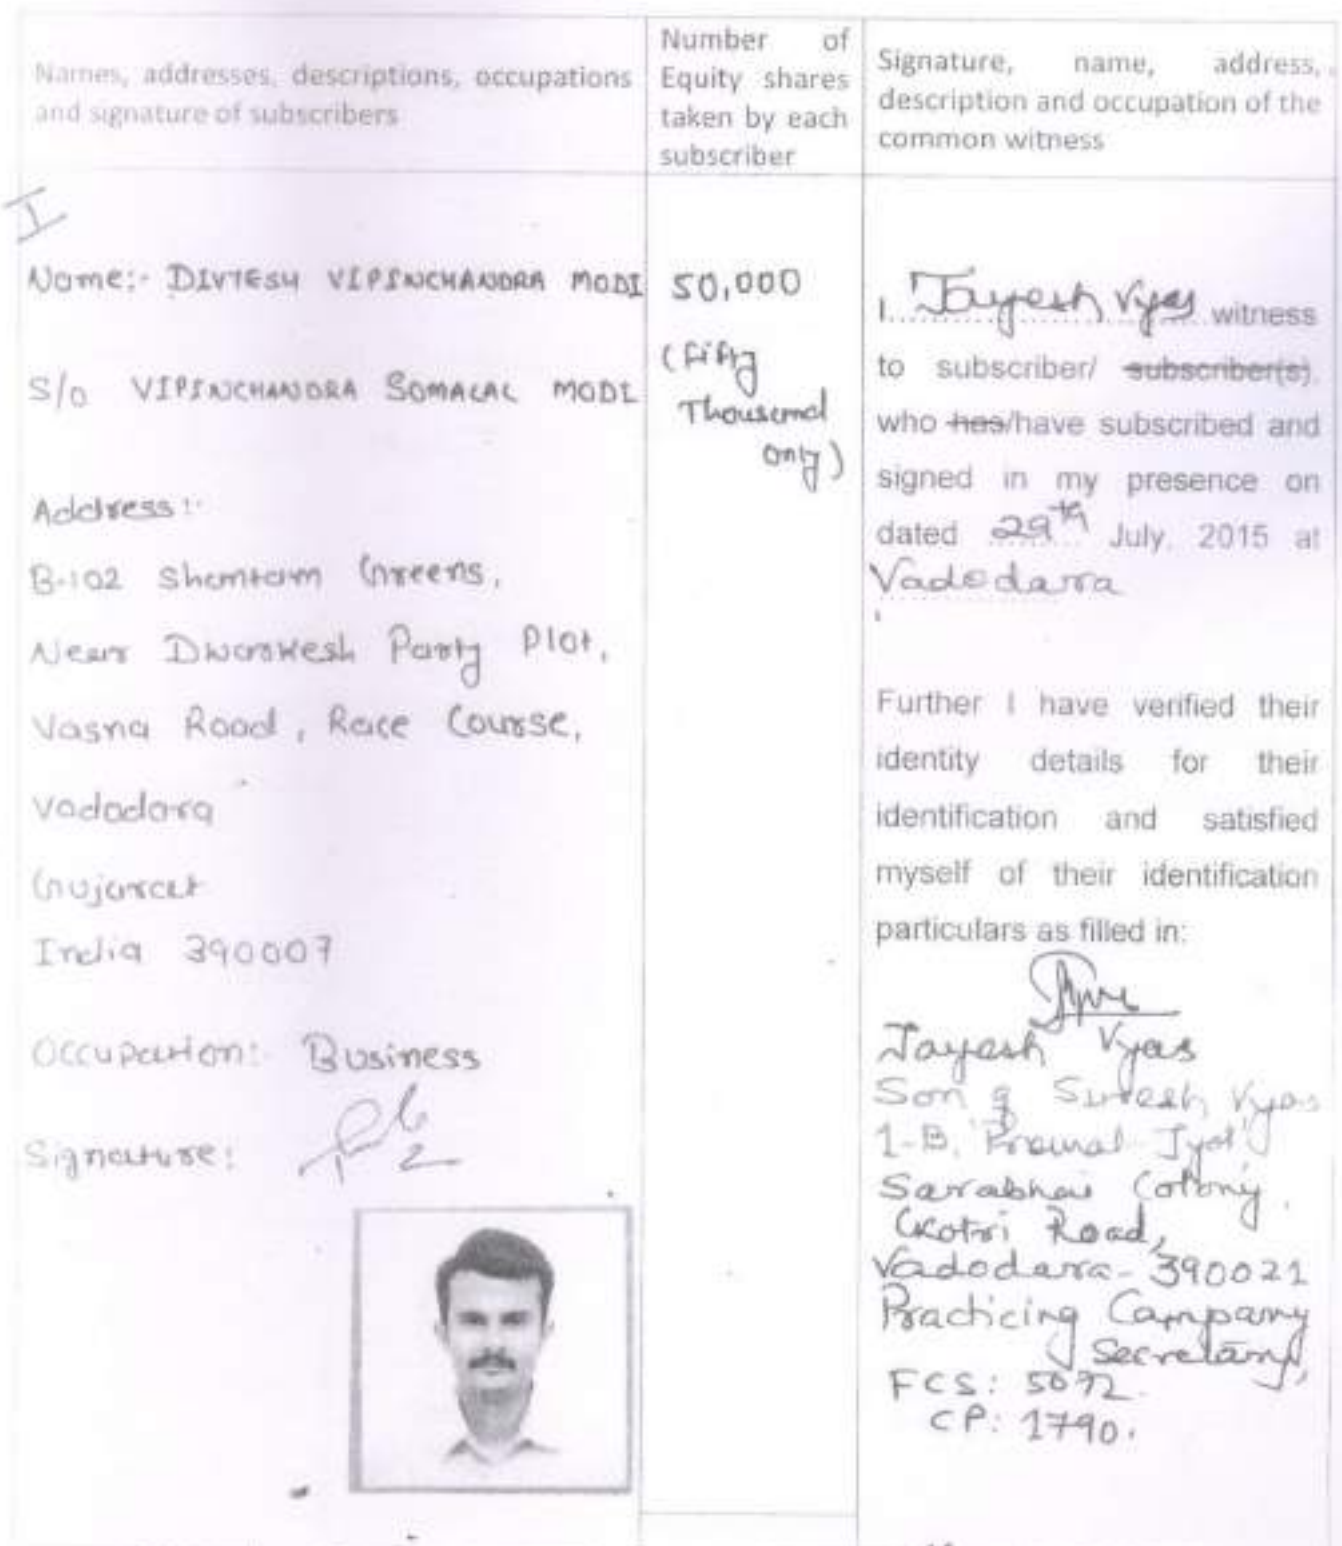 Names, addresses, descriptions, occupations
and signature of subscribers
Number of
Equity shares
taken by each
subscriber
Signature, name, address,
description and occupation of the
common witness
I
Name:- DIVYESH VIPINCHANDRA MODI
S/o VIPINCHANDRA SOMALAL MODI
Address:-
B-102 Shantam Greens,
Near Dwarkesh Party Plot,
Vasna Road, Race Course,
Vadodara
Gujarat
India 390007
Occupation:- Business
Signature:
50,000
(Fifty
Thousand
only)
I Jayesh Vyas witness
to subscriber/ subscriber(s),
who has/have subscribed and
signed in my presence on
dated 29th July, 2015 at
Vadodara
Further I have verified their
identity details for their
identification and satisfied
myself of their identification
particulars as filled in:
Jayesh Vyas
Son of Suresh Vyas
1-B, Jyot'
Sarabhai Colony,
Gotri Road,
Vadodara-390021
Practicing Company
Secretary,
FCS: 5072.
CP: 1790.